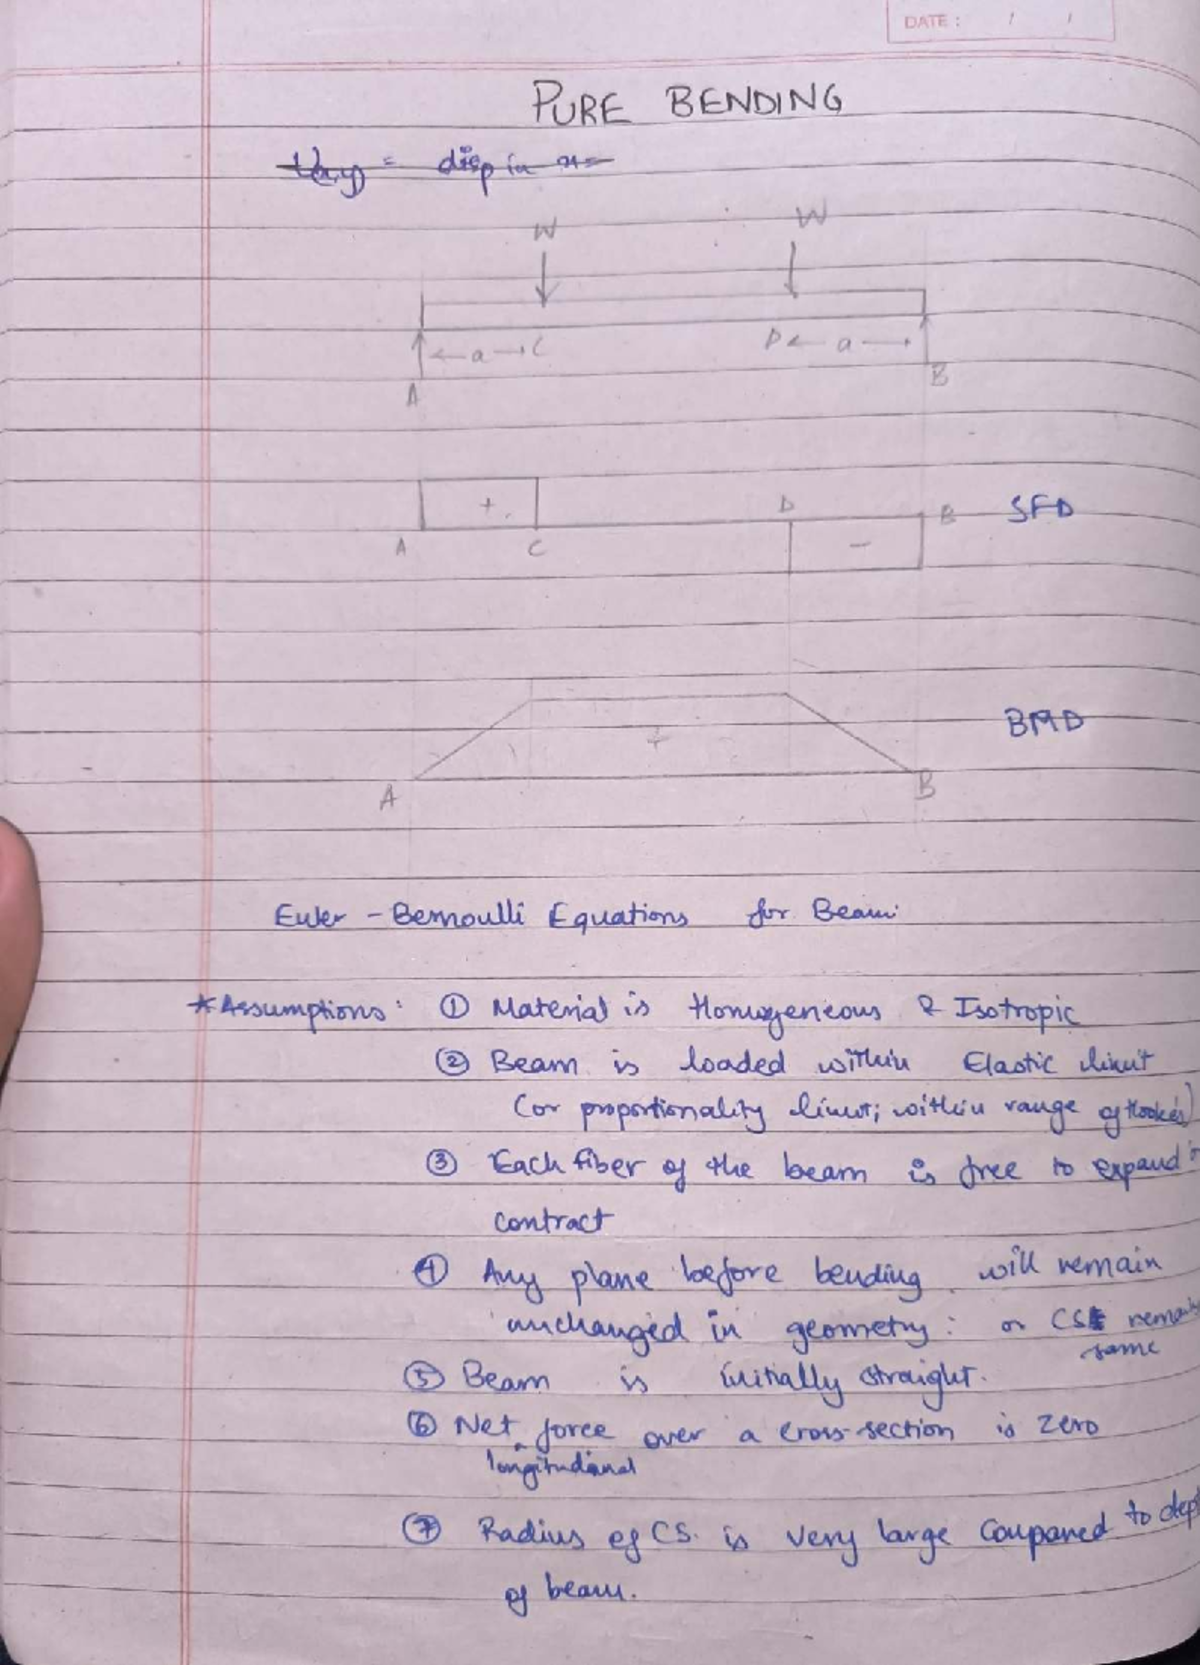 DATE: / /
PURE BENDING
W W
← a → C D ← a →
A B
+
D B SFD
A C
-
BMD
+
A B
Euler - Bernoulli Equations for Beam:
*Assumptions: ① Material is Homogeneous & Isotropic
② Beam is loaded within Elastic limit
(or proportionality limit; within range of Hooke's)
③ Each fiber of the beam is free to expand
contract
④ Any plane before bending will remain
unchanged in geometry: or CS remains
same
⑤ Beam is initially straight.
⑥ Net force over a cross-section is zero
longitudinal
⑦ Radius of CS. is very large Compared to
of beam.